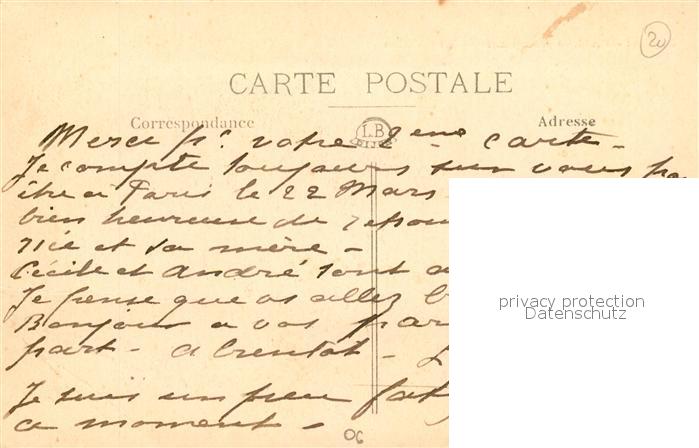 20
CARTE POSTALE
Correspondance
Adresse
L.B
DIJON
Merci pr. votre 2ème carte -
Je compte toujours sur vous
être à Paris le 22 Mars
bien heureuse de
et sa mère -
Cécile et André sont
Je pense que vs allez
Bonjour à vos
part - à bientôt -
Je suis un peu
ce moment -
06
privacy protection
Datenschutz